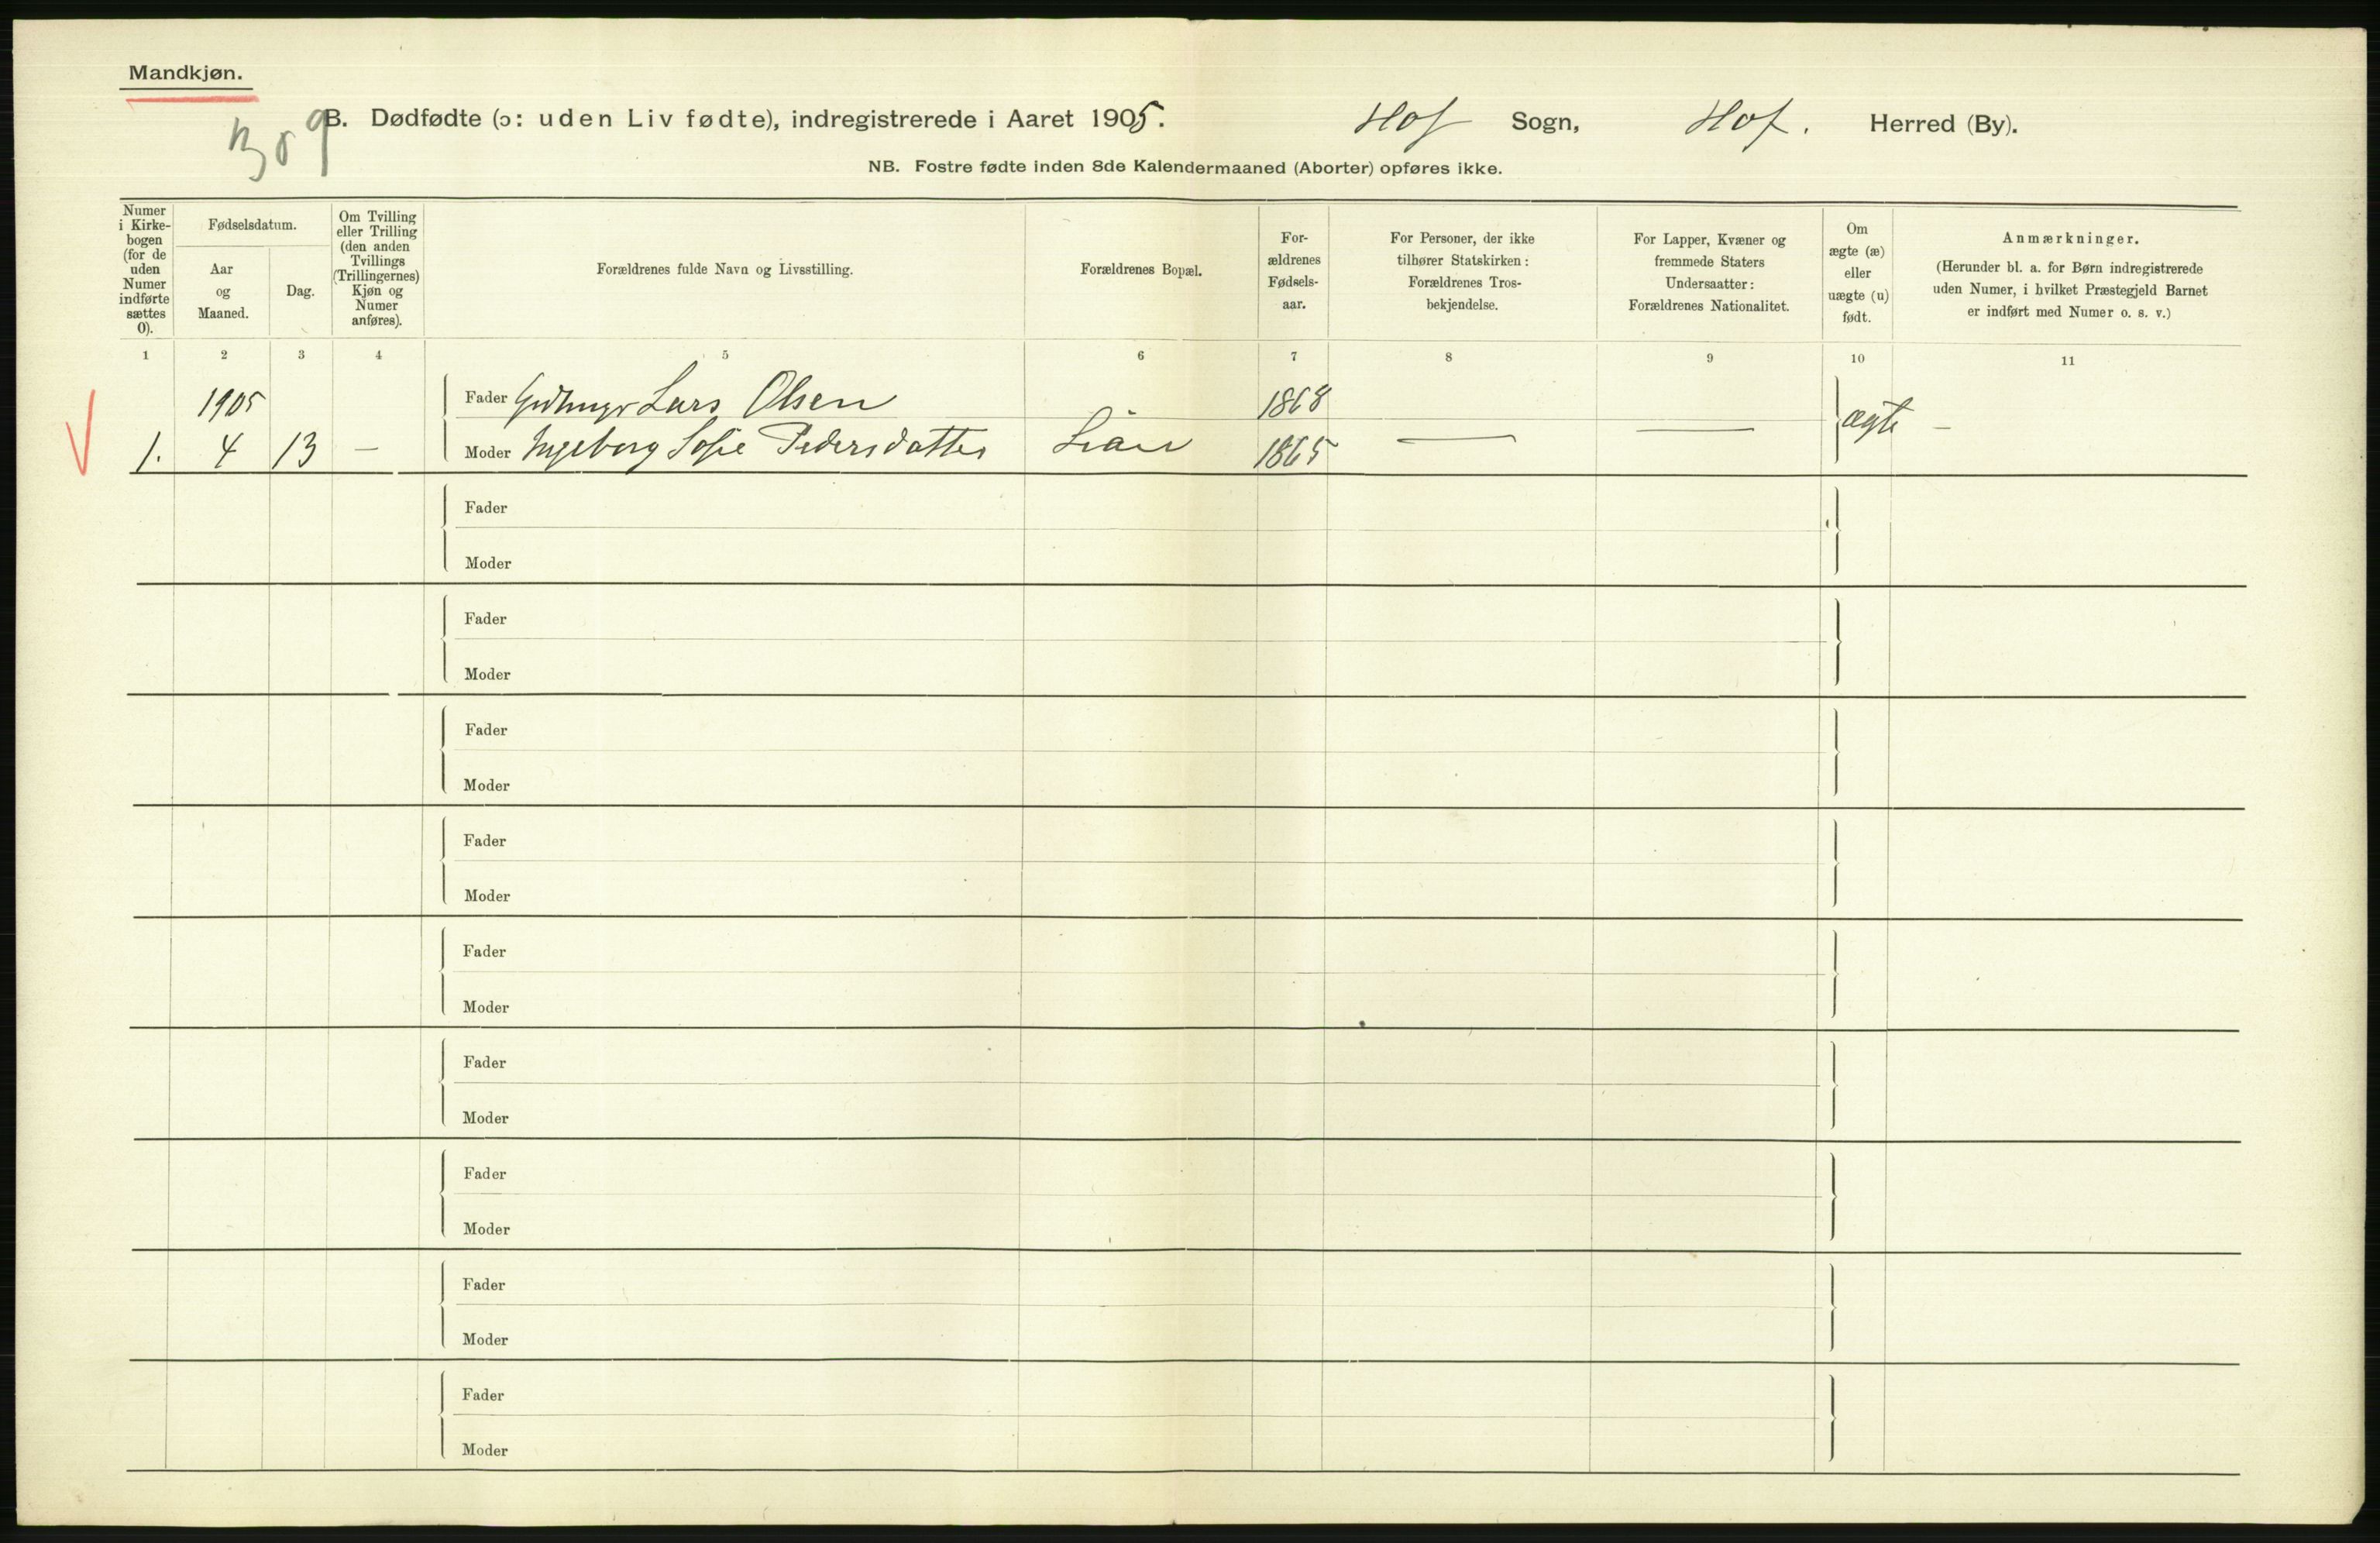 Mandkjøn.
B. Dødfødte (ɔ: uden Liv fødte), indregistrerede i Aaret 1905. Hof Sogn, Hof. Herred (By).
NB. Fostre fødte inden 8de Kalendermaaned (Aborter) opføres ikke.
Numer
i Kirke-
bogen
(for de
uden
Numer
indførte
sættes
0).
Fødselsdatum.
Aar
og
Maaned.
Dag.
Om Tvilling
eller Trilling
(den anden
Tvillings
(Trillingernes)
Kjøn og
Numer
anføres).
Forældrenes fulde Navn og Livsstilling.
Forældrenes Bopæl.
For-
ældrenes
Fødsels-
aar.
For Personer, der ikke
tilhører Statskirken:
Forældrenes Tros-
bekjendelse.
For Lapper, Kvæner og
fremmede Staters
Undersaatter:
Forældrenes Nationalitet.
Om
ægte (æ)
eller
uægte (u)
født.
Anmærkninger.
(Herunder bl. a. for Børn indregistrerede
uden Numer, i hvilket Præstegjeld Barnet
er indført med Numer o. s. v.)
1 2 3 4 5 6 7 8 9 10 11
1905 Fader Lars Olsen 1868
1. 4 13 — Moder Ingeborg Sofie Pedersdatter 1865 — — ægte —
Fader
Moder
Fader
Moder
Fader
Moder
Fader
Moder
Fader
Moder
Fader
Moder
Fader
Moder
Fader
Moder
Fader
Moder